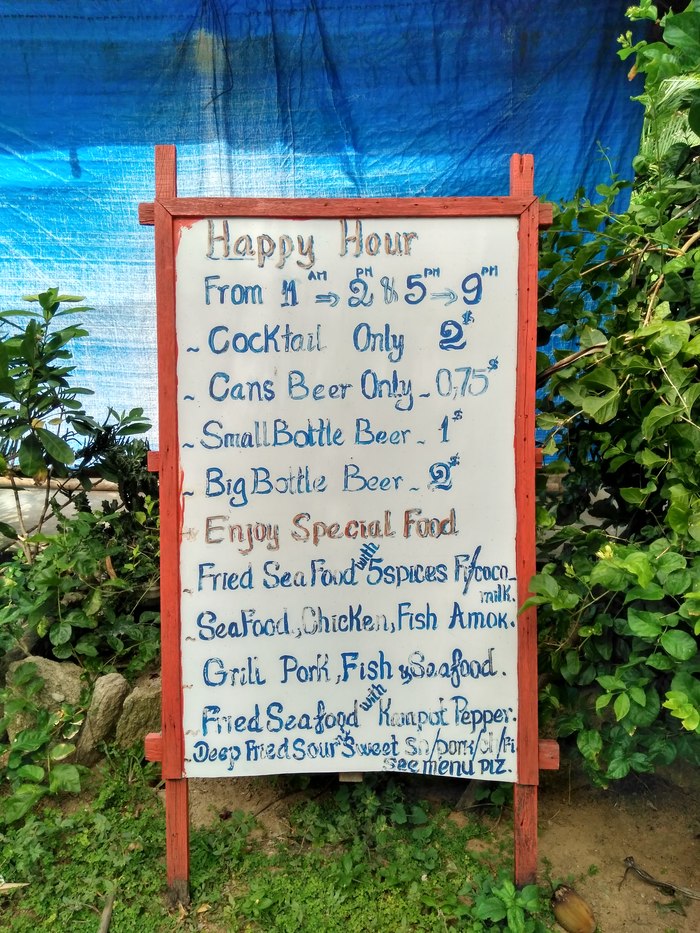 Happy Hour
From 11 AM ⇒ 2 PM & 5 PM ⇒ 9 PM
~ Cocktail Only 2$
~ Cans Beer Only ~ 0,75$
~ Small Bottle Beer ~ 1$
~ Big Bottle Beer ~ 2$
Enjoy Special Food
~ Fried SeaFood with 5spices F/coco_
milk.
~ SeaFood, Chicken, Fish Amok.
Grill Pork, Fish & Seafood.
~ Fried Seafood with Kampot Pepper.
~ Deep Fried Sour & Sweet Sn/pork/ch/Fi
see menu plz.